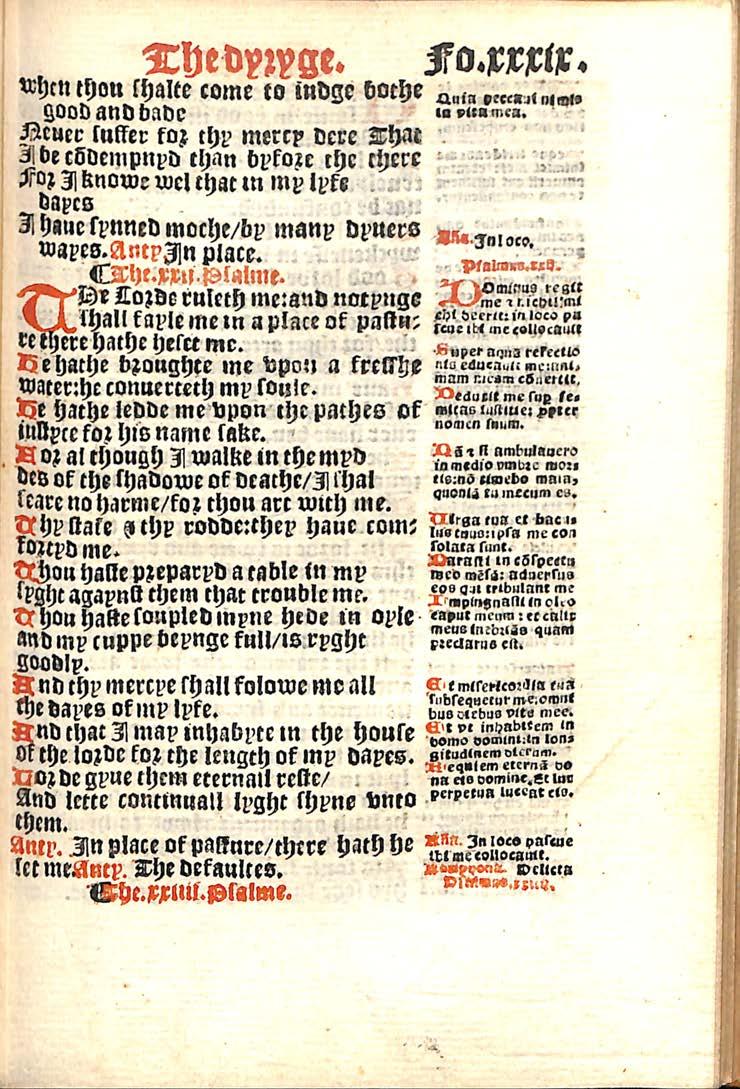 The dyryge. Fo.xxxix.
when thou shalte come to iudge bothe
good and bade
Neuer suffer for thy mercy dere That
I be cõdempnyd than byfore the there
For I knowe wel that in my lyfe
dayes
I haue synned moche/by many dyuers
wayes. Anty In place.
The.xxii.Psalme.
THe Lorde ruleth me:and notynge
shall fayle me in a place of pastu:
re there hathe heset me.
He hathe broughte me vpon a fresshe
water:he conuerteth my soule.
He hathe ledde me vpon the pathes of
iustyce for his name sake.
For al though I walke in the myd
des of the shadowe of deathe/I shal
feare no harme/for thou art with me.
Thy stafe & thy rodde:they haue com:
fortyd me.
Thou haste preparyd a table in my
syght agaynst them that trouble me.
Thou haste soupled myne hede in oyle
and my cuppe beynge full/is ryght
goodly.
And thy mercye shall folowe me all
the dayes of my lyfe.
And that I may inhabyte in the house
of the lorde for the length of my dayes.
Lorde gyue them eternall reste/
And lette continuall lyght shyne vnto
them.
Anty. In place of pasture/there hath he
set me. Anty. The defautes.
The.xxiiii.Psalme.
Quia peccaui nimis
in vita mea.
Aña. In loco.
Psalmus.xxii.
DOminus regit
me & nichil mi
chi deerit: in loco pa
scue ibi me collocauit
Super aquã refectio
nis educauit me: ani,
mam meam cõuertit.
Deduxit me sup se,
mitas iustitie: ppter
nomen suum.
Nã & si ambulauero
in medio vmbre mort
tis:nõ timebo mala,
quoniã tu mecum es.
Uirga tua et bacu
lus tuus: ipsa me con
solata sunt.
Parasti in cõspectu
meo mẽsã: aduersus
eos qui tribulant me
Impingnasti in oleo
caput meum: et calix
meus inebriãs quam
preclarus est.
Et misericordia tuã
subsequetur me: omni
bus diebus vite mee.
Et vt inhabitem in
domo domini: in lon
gitudinem dierum.
Requiem eternã do
na eis domine. Et lux
perpetua luceat eis.
Aña. In loco pascue
ibi me collocauit.
Delicta